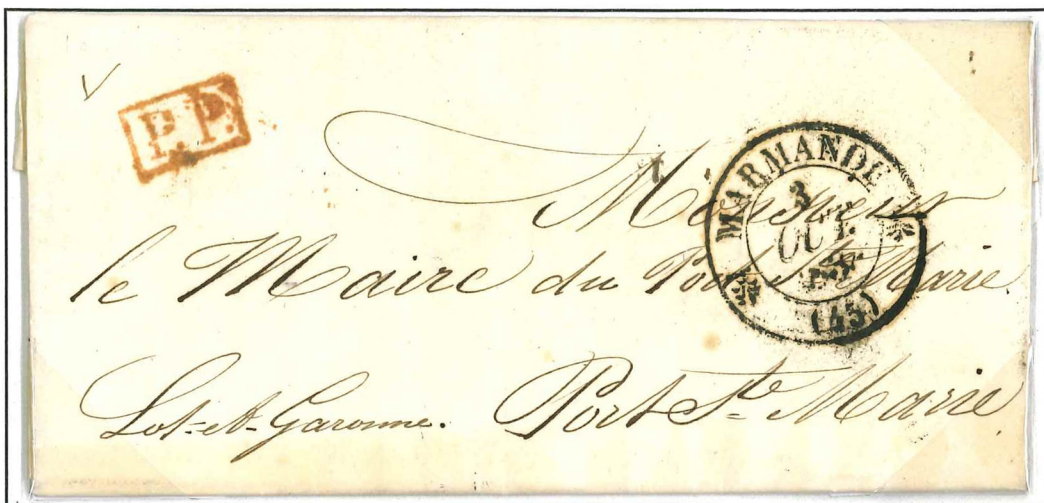 P.P.
MARMANDE
3
OCT.
(45)
Monsieur
le Maire du Port Ste Marie
Lot-et-Garonne. Port Ste Marie